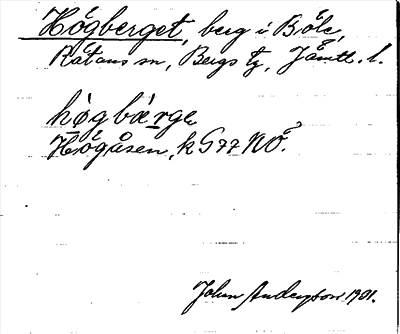 Högberget, berg i Böle,
Rätans sn, Bergs tg, Jämtl. l.
høgbærge
Högåsen, k G77 NÖ.
John Andersson 1931.